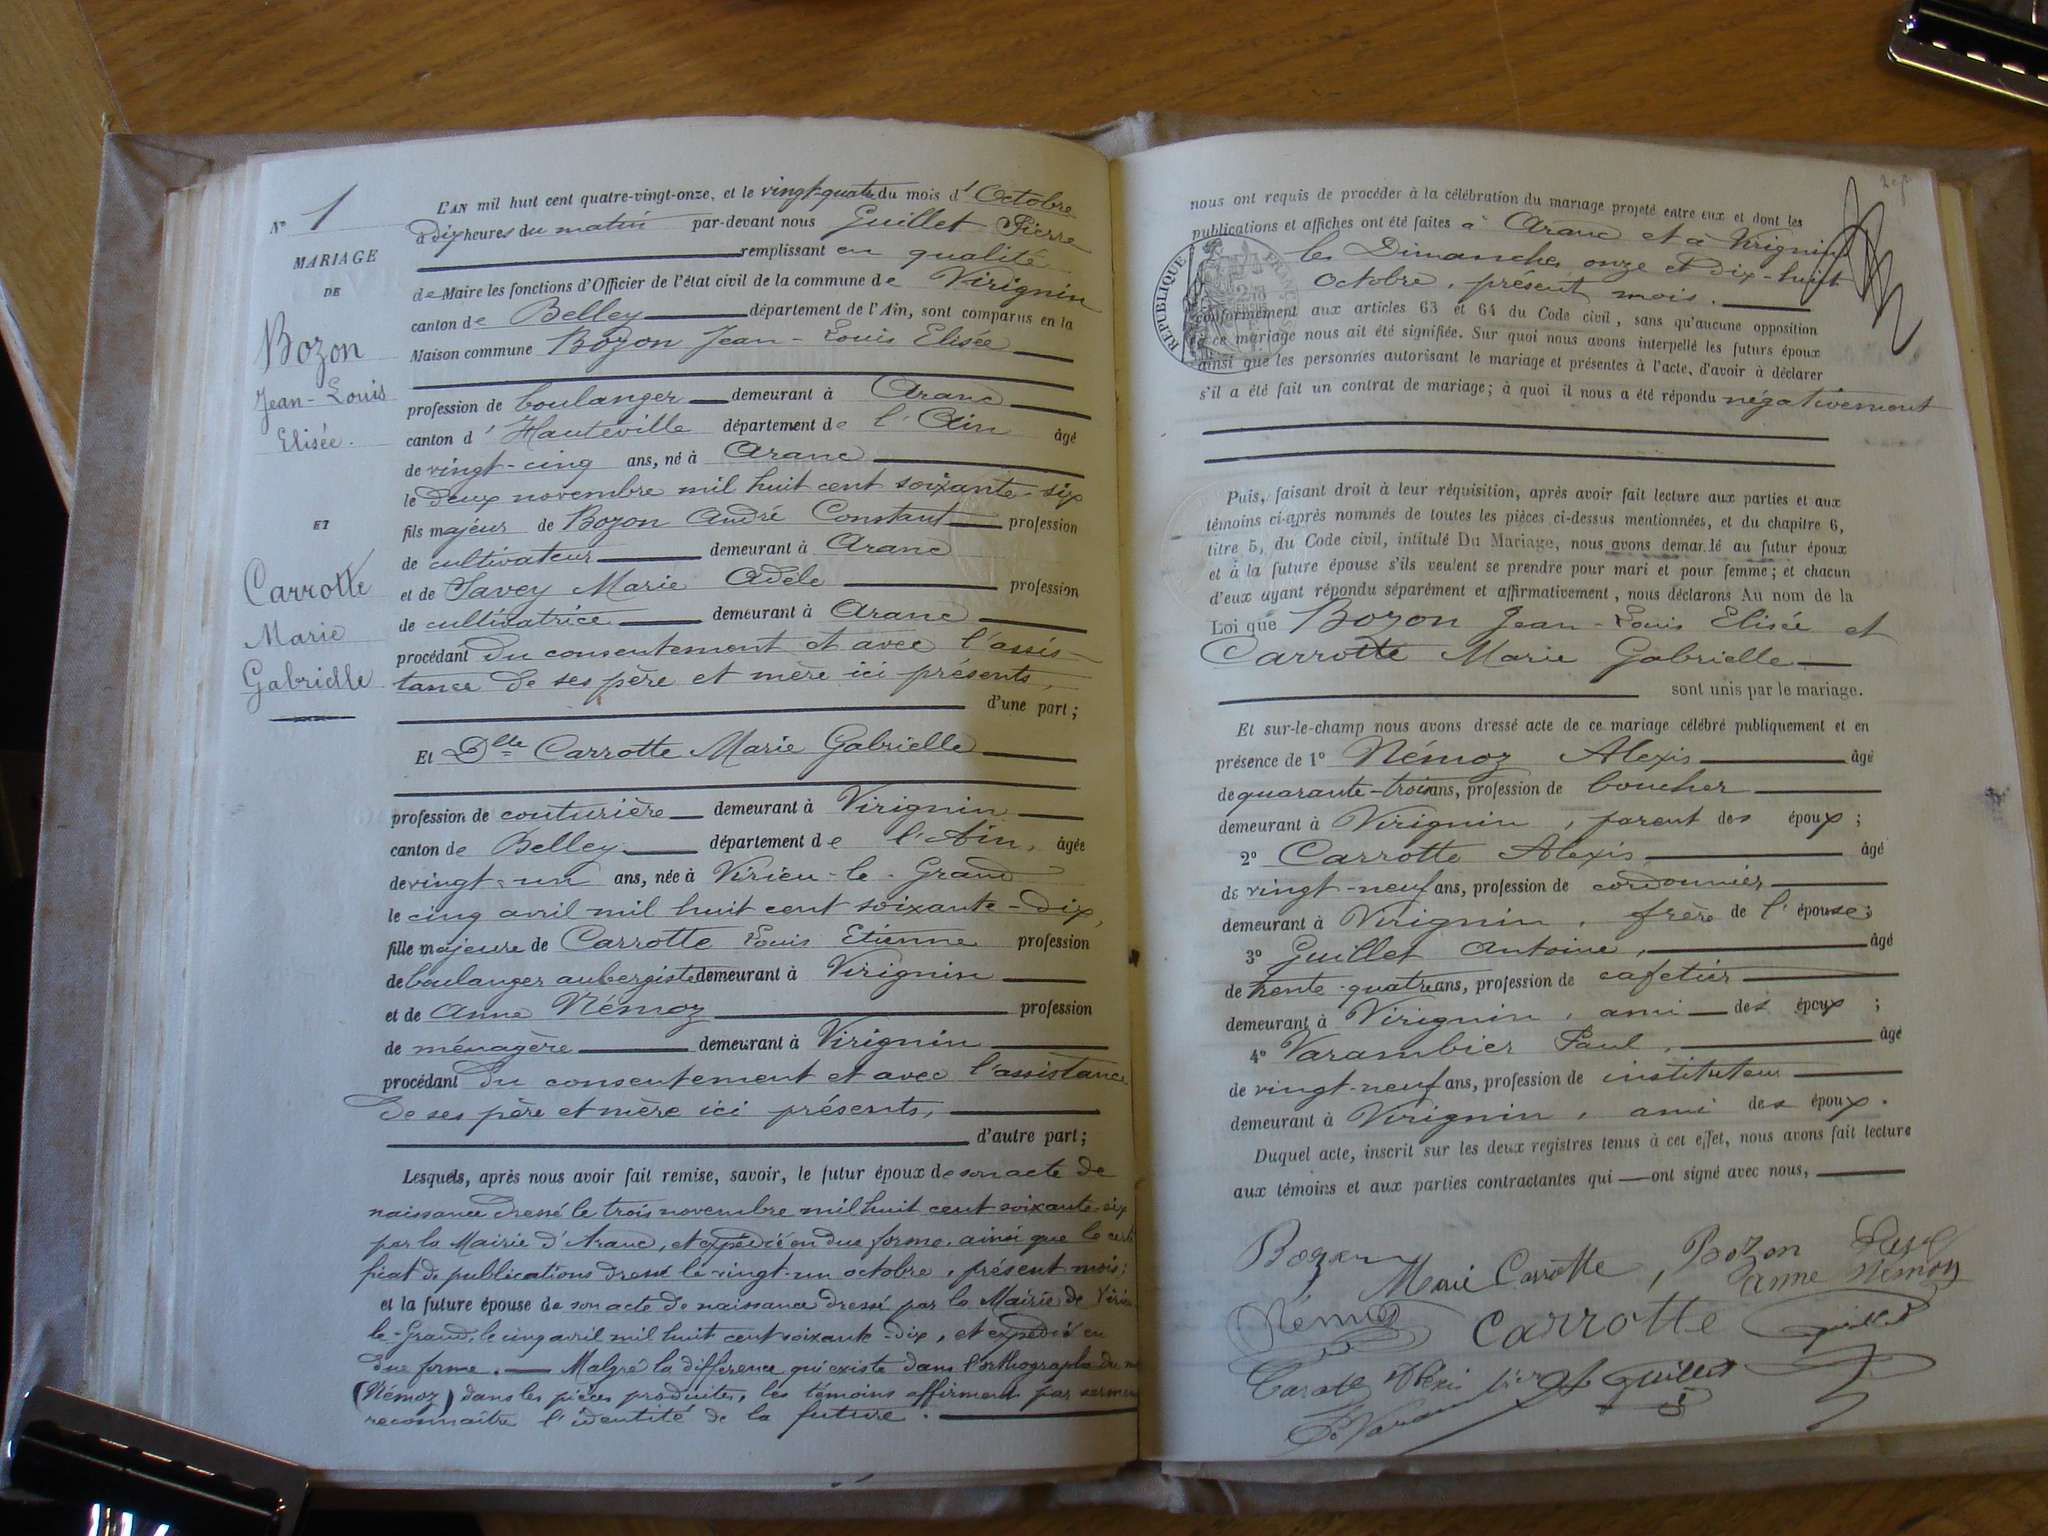 N° 1
MARIAGE
DE
Bozon
Jean-Louis
Elisée.
ET
Carrotte
Marie
Gabrielle
L'AN mil huit cent quatre-vingt-onze, et le vingt-quatre du mois d'Octobre
à dix heures du matin par-devant nous Guillet Pierre
remplissant en qualité
de Maire les fonctions d'Officier de l'état civil de la commune de Virignin
canton de Belley département de l'Ain, sont comparus en la
Maison commune Bozon Jean-Louis Elisée
profession de boulanger demeurant à Aranc
canton d'Hauteville département de l'Ain âgé
de vingt-cinq ans, né à Aranc
le deux novembre mil huit cent soixante-six
fils majeur de Bozon André Constant profession
de cultivateur demeurant à Aranc
et de Savey Marie Adèle profession
de cultivatrice demeurant à Aranc
procédant du consentement et avec l'assis-
tance de ses père et mère ici présents,
d'une part;
Et Dlle Carrotte Marie Gabrielle
profession de couturière demeurant à Virignin
canton de Belley département de l'Ain, âgée
de vingt-un ans, née à Virieu-le-Grand
le cinq avril mil huit cent soixante-dix,
fille majeure de Carrotte Louis Etienne profession
de boulanger aubergiste demeurant à Virignin
et de Anne Némoz profession
de ménagère demeurant à Virignin
procédant du consentement et avec l'assistance
de ses père et mère ici présents,
d'autre part;
Lesquels, après nous avoir fait remise, savoir, le futur époux de son acte de
naissance dressé le trois novembre mil huit cent soixante-six
par la Mairie d'Aranc, et expédié en due forme, ainsi que le certi
ficat de publications dressé le vingt-un octobre, présent mois;
et la future épouse de son acte de naissance dressé par la Mairie de Virieu-
le-Grand, le cinq avril mil huit cent soixante-dix, et expédié en
due forme. Malgré la différence qui existe dans l'orthographe du
(Némoz) dans les pièces produites, les témoins affirment par
reconnaître l'identité de la future.
nous ont requis de procéder à la célébration du mariage projeté entre eux et dont les
publications et affiches ont été faites à Aranc et à Virignin
les Dimanches onze et dix-huit
Octobre, présent mois.
RÉPUBLIQUE FRANÇAISE
conformément aux articles 63 et 64 du Code civil, sans qu'aucune opposition
à ce mariage nous ait été signifiée. Sur quoi nous avons interpellé les futurs époux
ainsi que les personnes autorisant le mariage et présentes à l'acte, d'avoir à déclarer
s'il a été fait un contrat de mariage; à quoi il nous a été répondu négativement
Puis, faisant droit à leur réquisition, après avoir fait lecture aux parties et aux
témoins ci-après nommés de toutes les pièces ci-dessus mentionnées, et du chapitre 6,
titre 5, du Code civil, intitulé Du Mariage, nous avons demandé au futur époux
et à la future épouse s'ils veulent se prendre pour mari et pour femme; et chacun
d'eux ayant répondu séparément et affirmativement, nous déclarons Au nom de la
Loi que Bozon Jean-Louis Elisée et
Carrotte Marie Gabrielle
sont unis par le mariage.
Et sur-le-champ nous avons dressé acte de ce mariage célébré publiquement et en
présence de 1° Némoz Alexis âgé
de quarante-trois ans, profession de boucher
demeurant à Virignin, parent des époux;
2° Carrotte Alexis âgé
de vingt-neuf ans, profession de cordonnier
demeurant à Virignin, frère de l'épouse;
3° Guillet Antoine, âgé
de trente-quatre ans, profession de cafetier
demeurant à Virignin, ami des époux;
4° Varambier Paul, âgé
de vingt-neuf ans, profession de instituteur
demeurant à Virignin, ami des époux.
Duquel acte, inscrit sur les deux registres tenus à cet effet, nous avons fait lecture
aux témoins et aux parties contractantes qui ont signé avec nous,
Bozon Marie Carrotte, Bozon
anne Némoz
Némoz Carrotte Guillet
Carotte Alexis Guillet